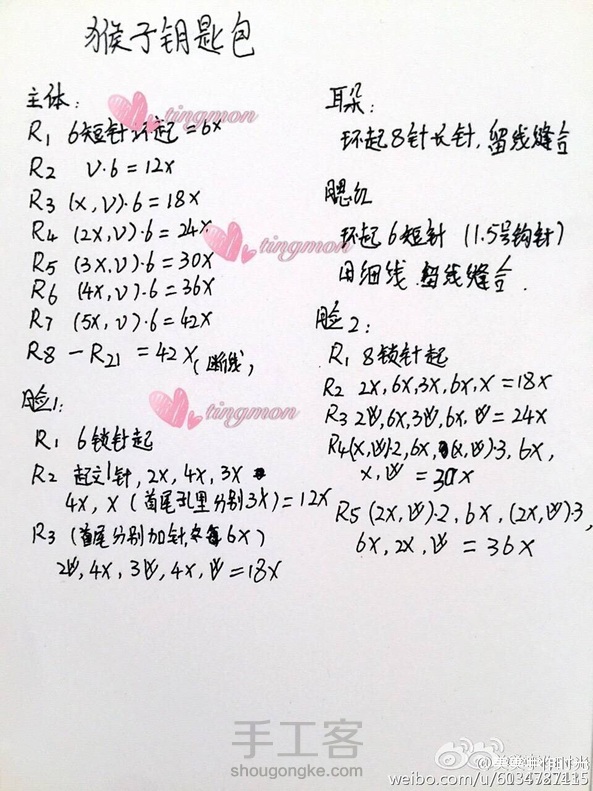 猴子钥匙包
主体:
R1 6短针环起=6X
R2 V·6=12X
R3 (X,V)·6=18X
R4 (2X,V)·6=24X
R5 (3X,V)·6=30X
R6 (4X,V)·6=36X
R7 (5X,V)·6=42X
R8—R21 =42X(断线)
脸1:
R1 6锁针起
R2 起立1针,2X,4X,3X
4X,X(首尾孔里分别3X)=12X
R3 (首尾分别加针 6X)
2W,4X,3W,4X,W=18X
耳朵:
环起8针长针,留线缝合
腮红
环起6短针 (1.5号钩针)
用细线 留线缝合.
脸2:
R1 8锁针起
R2 2X,6X,3X,6X,X=18X
R3 2W,6X,3W,6X,W=24X
R4(X,W)·2,6X,(X,W)·3,6X,
X,W=30X
R5 (2X,W)·2,6X,(2X,W)·3,
6X,2X,W=36X
tingmon
tingmon
tingmon
手工客
shougongke.com
weibo.com/u/